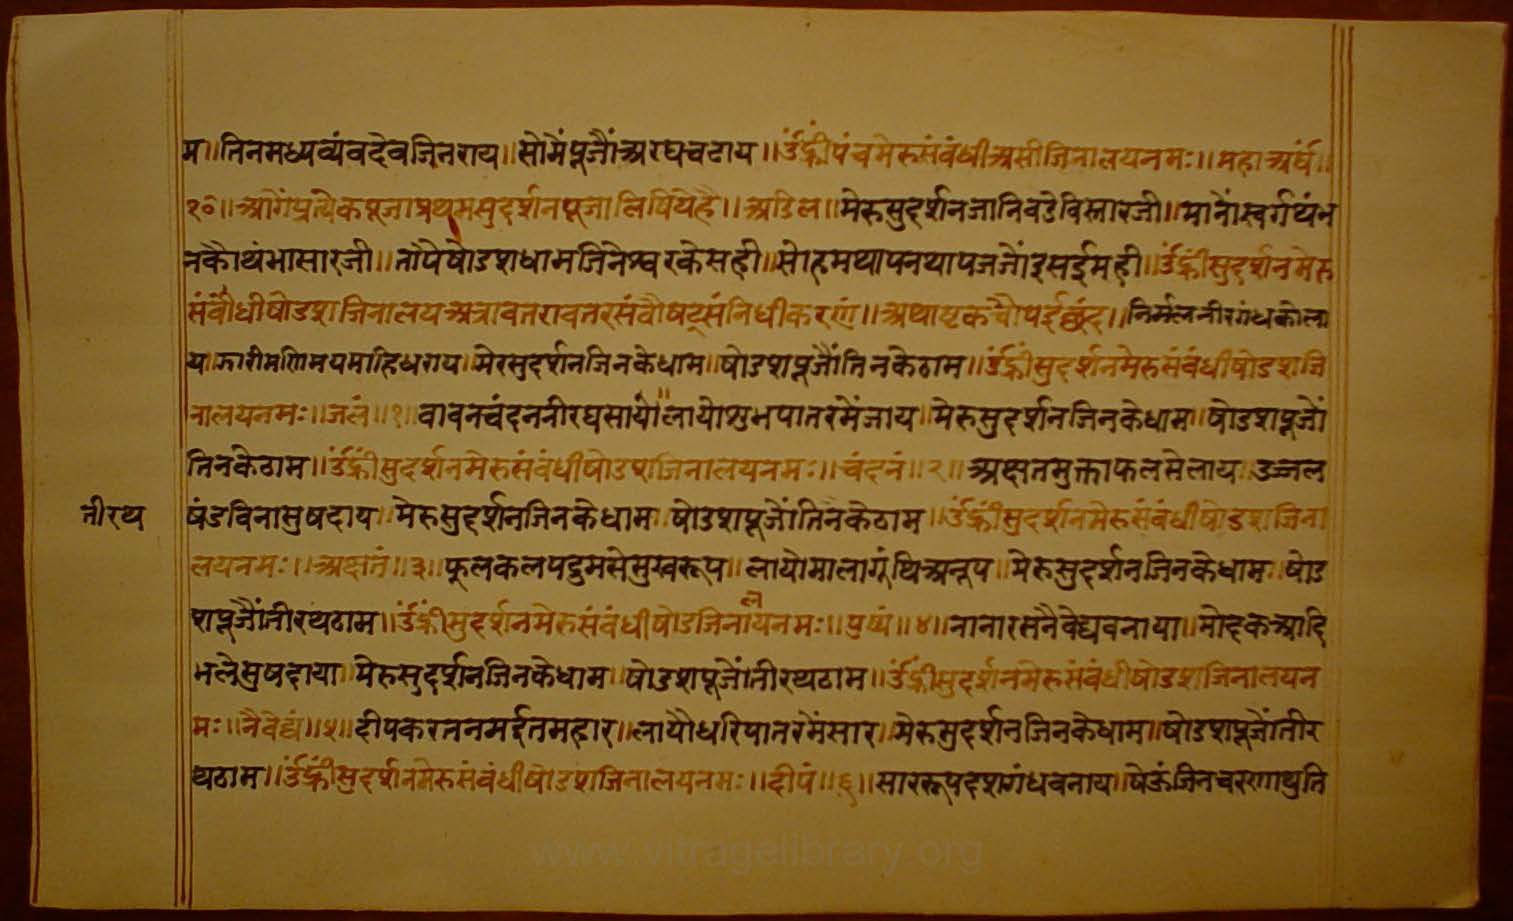 म॥तिनमध्यव्यंवदेवजिनराय॥सोमेंपूजौंअरघचढाय॥उंह्रींपंचमेरुसंबंधीअसीजिनालयनमः॥महाअर्घं॥
१०॥आगेंप्रत्येकपूजाप्रथमसुदर्शनपूजालिषियेहै॥अडिल॥मेरुसुदर्शनजानिवडेविस्तारजी॥मानौंस्वर्गथंभ
नकौथंभासारजी॥तापैषोडशधामजिनेश्वरकेसही॥सोहमथापनथापजजौंइसईमही॥उंह्रींसुदर्शनमेरु
संबंधीषोडशजिनालयअत्रावतरावतरसंवौषट्संनिधीकरणं॥अथाष्टकचौपईछंद॥निर्मलनीरगंधकोला
य॥झारीमणिमयमाहिधराय॥मेरसुदर्शनजिनकेधाम॥षोडशपूजौंतिनकेठाम॥उंह्रींसुदर्शनमेरुसंबंधीषोडशजि
नालयनमः॥जलं॥१॥वावनचंदननीरघसायो॥लायोशुभपातरमेंजाय॥मेरुसुदर्शनजिनकेधाम॥षोडशपूजों
तिनकेठाम॥उंह्रींसुदर्शनमेरुसंबंधीषोडशजिनालयनमः॥चंदनं॥२॥अक्षतमुक्ताफलसेलाय॥उज्जल
षंडविनासुषदाय॥मेरुसुदर्शनजिनकेधाम॥षोडशपूजोंतिनकेठाम॥उंह्रींसुदर्शनमेरुसंबंधीषोडशजिना
तीरथ
लयनमः॥अक्षतं॥३॥फूलकलपद्रुमसेसुखरूप॥लायोमालागूंथिअनूप॥मेरुसुदर्शनजिनकेधाम॥षोड
शपूजौंतीरथठाम॥उंह्रींसुदर्शनमेरुसंबंधीषोडजिनालयनमः॥पुष्पं॥४॥नानारसनैवेद्यवनाया॥मोदकआदि
भलेसुषदाया॥मेरुसुदर्शनजिनकेधाम॥षोडशपूजोंतीरथठाम॥उंह्रींसुदर्शनमेरुसंबंधीषोडशजिनालयन
मः॥नैवेद्यं॥५॥दीपकरतनमईतमहार॥लायौधरिपातरमेंसार॥मेरुसुदर्शनजिनकेधाम॥षोडशपूजोंतीर
थठाम॥उंह्रींसुदर्शनमेरुसंबंधीषोडशजिनालयनमः॥दीपं॥६॥साररूपदशगंधवनाय॥षेऊंजिनचरणाथुति
www.vitragelibrary.org